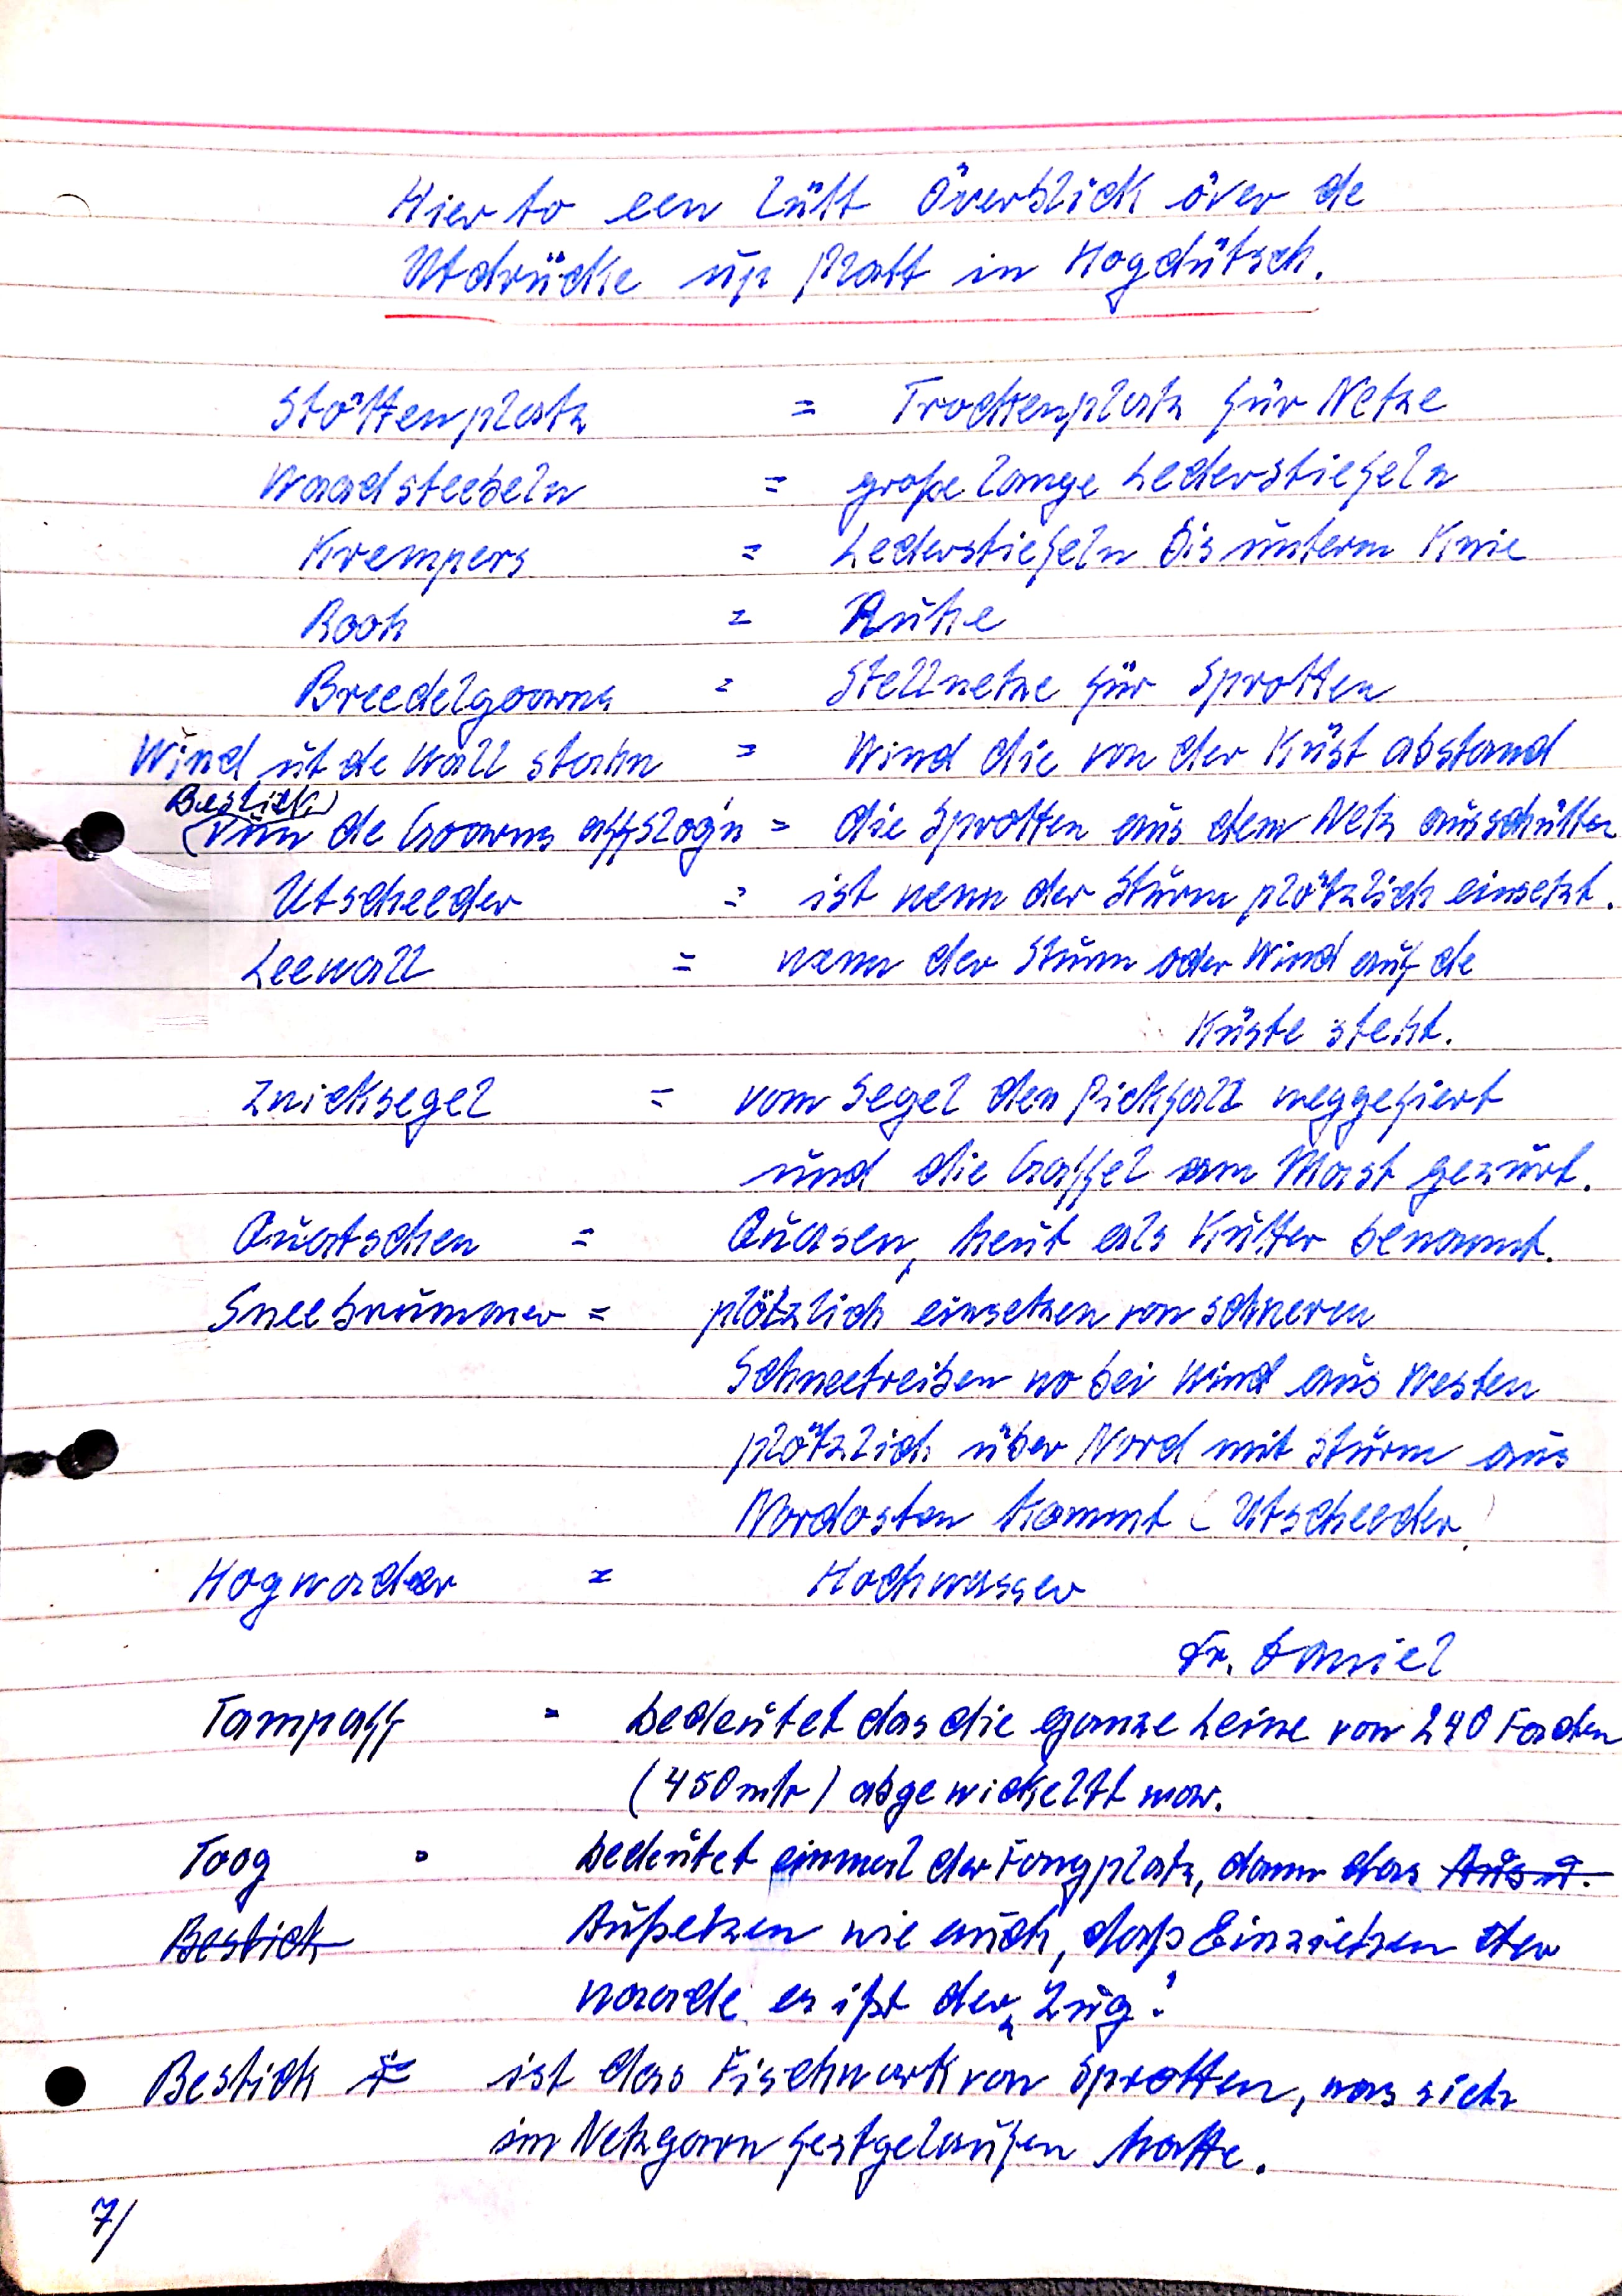 Hierto een lütt Överblick över de
Utdrücke up Platt in Hogdütsch.
Stöttenplatz = Trockenplatz für Netze
Waadsteebeln = große lange Lederstiefeln
Krempers = Lederstiefeln bis unterm Knie
Rooh = Ruhe
Breedelgoarns = Stellnetze für Sprotten
Wind ut de Wall stahn = Wind die von der Küst abstand
Bestick
(vun de Goarns affslog'n = die Sprotten aus dem Netz ausschütten
Utscheeder = ist wenn der Sturm plötzlich einsetzt.
Leewall = wenn der Sturm oder Wind auf de
Küste steht.
Zwicksegel = vom Segel den Pickfall weggefiert
und die Gaffel am Mast gezurt.
Quatschen = Quasen, heut als Kutter benannt.
Sneebrummer = plötzlich einsetzen von schweren
Schneetreiben wo bei Wind aus Westen
plötzlich über Nord mit Sturm aus
Nordosten kommt (Utscheeder)
Hogwader = Hochwasser
Fr. Daniel
Tampaff = bedeutet das die ganze Leine von 240 Faden
(450 mtr) abgewickeltt war.
Toog = bedeutet einmal der Fangplatz, dann das Aus u.
Bestick Außetzen wie auch, daß Einziehen der
Waade es ißt der „Zug".
Bestick = ist das Fischwerk von Sprotten, was sich
im Netzgarn festgelaufen hatte.
7/